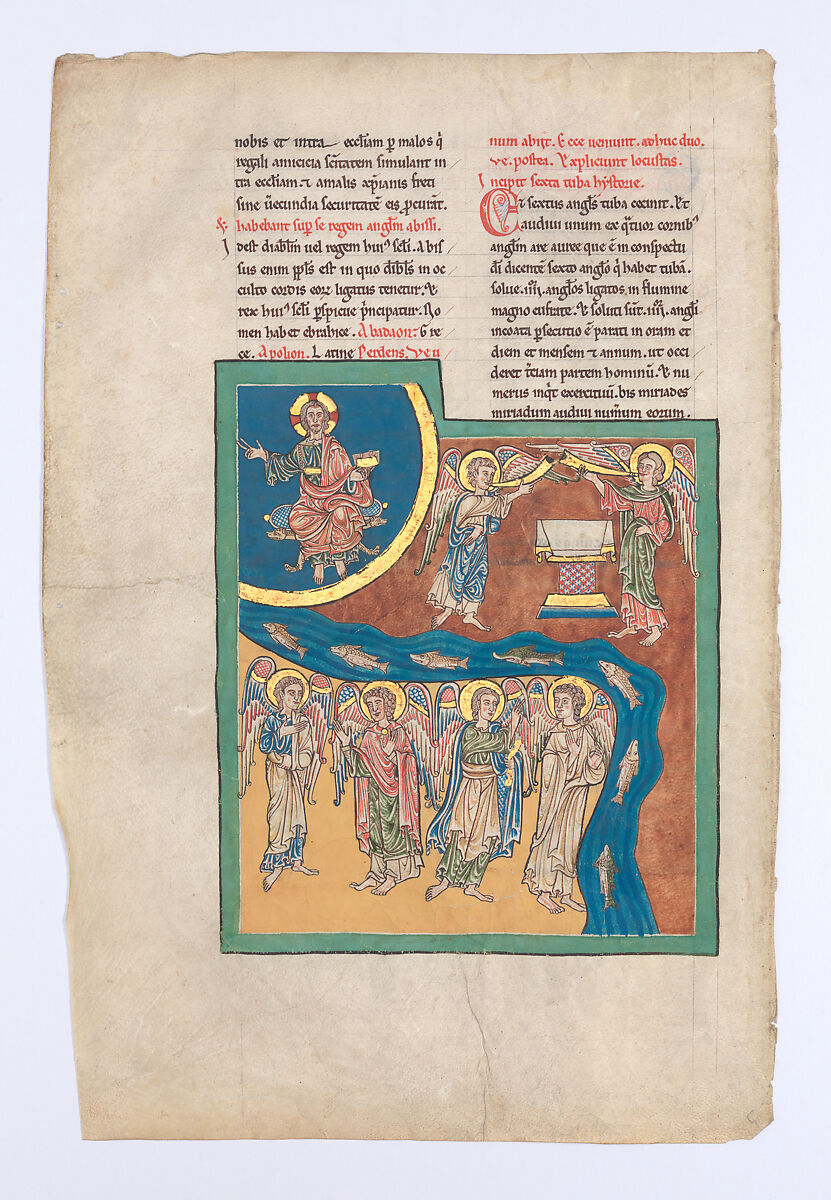 nobis et intra eccl̄iam ꝑ malos q̇
regali amicicia sc̄itatem simulant in
tra eccl̄iam. ⁊ a malis xp̄ianis freti
sine uerecundia securitatē eis ꝓcurāt.
& habebant suꝑ se regem angl̄m abissi.
Idest diabl̄m uel regem hui' sc̄li. Abis
sus enim ppl̄s est in quo dibl̄s in oc
culto cordis eoꝝ ligatus tenetur. &
rex hui' sc̄li ꝑspicue p̄ncipatur. No
men habet ebraice. Abadaon. Gre
ce. Apolion. Latine Perdens. Ve u
num abiit. Ecce veniunt. adhuc duo.
ve. postea. Expliciunt locustas.
Incipit sexta tuba hystorie.
Et sextus angl̄s tuba cecinit. Et
audiui unum ex q̄tuor cornib'
angl̄m are auree que ē in conspectu
dī dicentē sexto angl̄o q̇ habet tubā.
solue .IIII. angl̄os ligatos in flumine
magno eufrate. & soluti sūt .IIII. angl̄i
incoata ꝑsecutio ē parati in oram et
diem et mensem ⁊ annum. ut occi
deret t̄ciam partem hominū. & nu
merus inq̇t exercituū. bis miriades
miriadum audiui num̄um eorum.